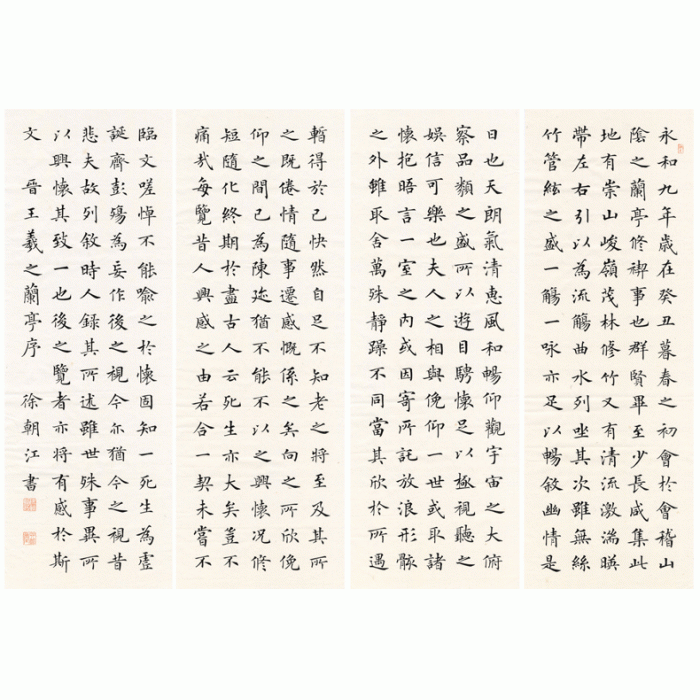 永和九年歲在癸丑暮春之初會於會稽山
陰之蘭亭修禊事也群賢畢至少長咸集此
地有崇山峻嶺茂林修竹又有清流激湍暎
帶左右引以為流觴曲水列坐其次雖無絲
竹管絃之盛一觴一咏亦足以暢敘幽情是
日也天朗氣清惠風和暢仰觀宇宙之大俯
察品類之盛所以遊目騁懷足以極視聽之
娛信可樂也夫人之相與俛仰一世或取諸
懷抱晤言一室之內或因寄所託放浪形骸
之外雖取舍萬殊靜躁不同當其欣於所遇
暫得於己快然自足不知老之將至及其所
之既倦情隨事遷感慨係之矣向之所欣俛
仰之間已為陳迹猶不能不以之興懷況修
短隨化終期於盡古人云死生亦大矣豈不
痛哉每覽昔人興感之由若合一契未嘗不
臨文嗟悼不能喻之於懷固知一死生為虛
誕齊彭殤為妄作後之視今亦猶今之視昔
悲夫故列敘時人錄其所述雖世殊事異所
以興懷其致一也後之覽者亦將有感於斯
文 晉王羲之蘭亭序 徐朝江書